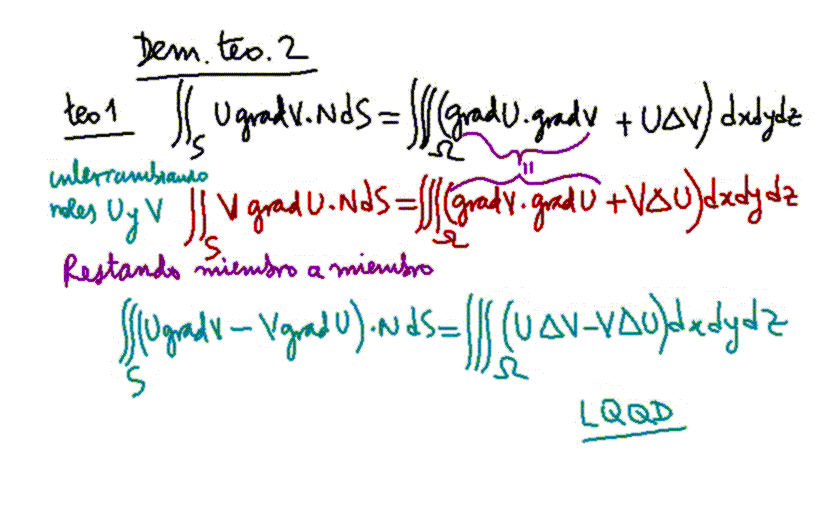 Dem. teo. 2
teo 1 ∬_S U gradV · N dS = ∭_Ω (gradU · gradV + U∆V) dxdydz
=
intercambiando
roles U y V ∬_S V grad U · N dS = ∭_Ω (gradV · gradU + V∆U) dxdydz
Restando miembro a miembro
∭_S (U gradV − V gradU) · N dS = ∭_Ω (U∆V − V∆U) dxdydz
LQQD